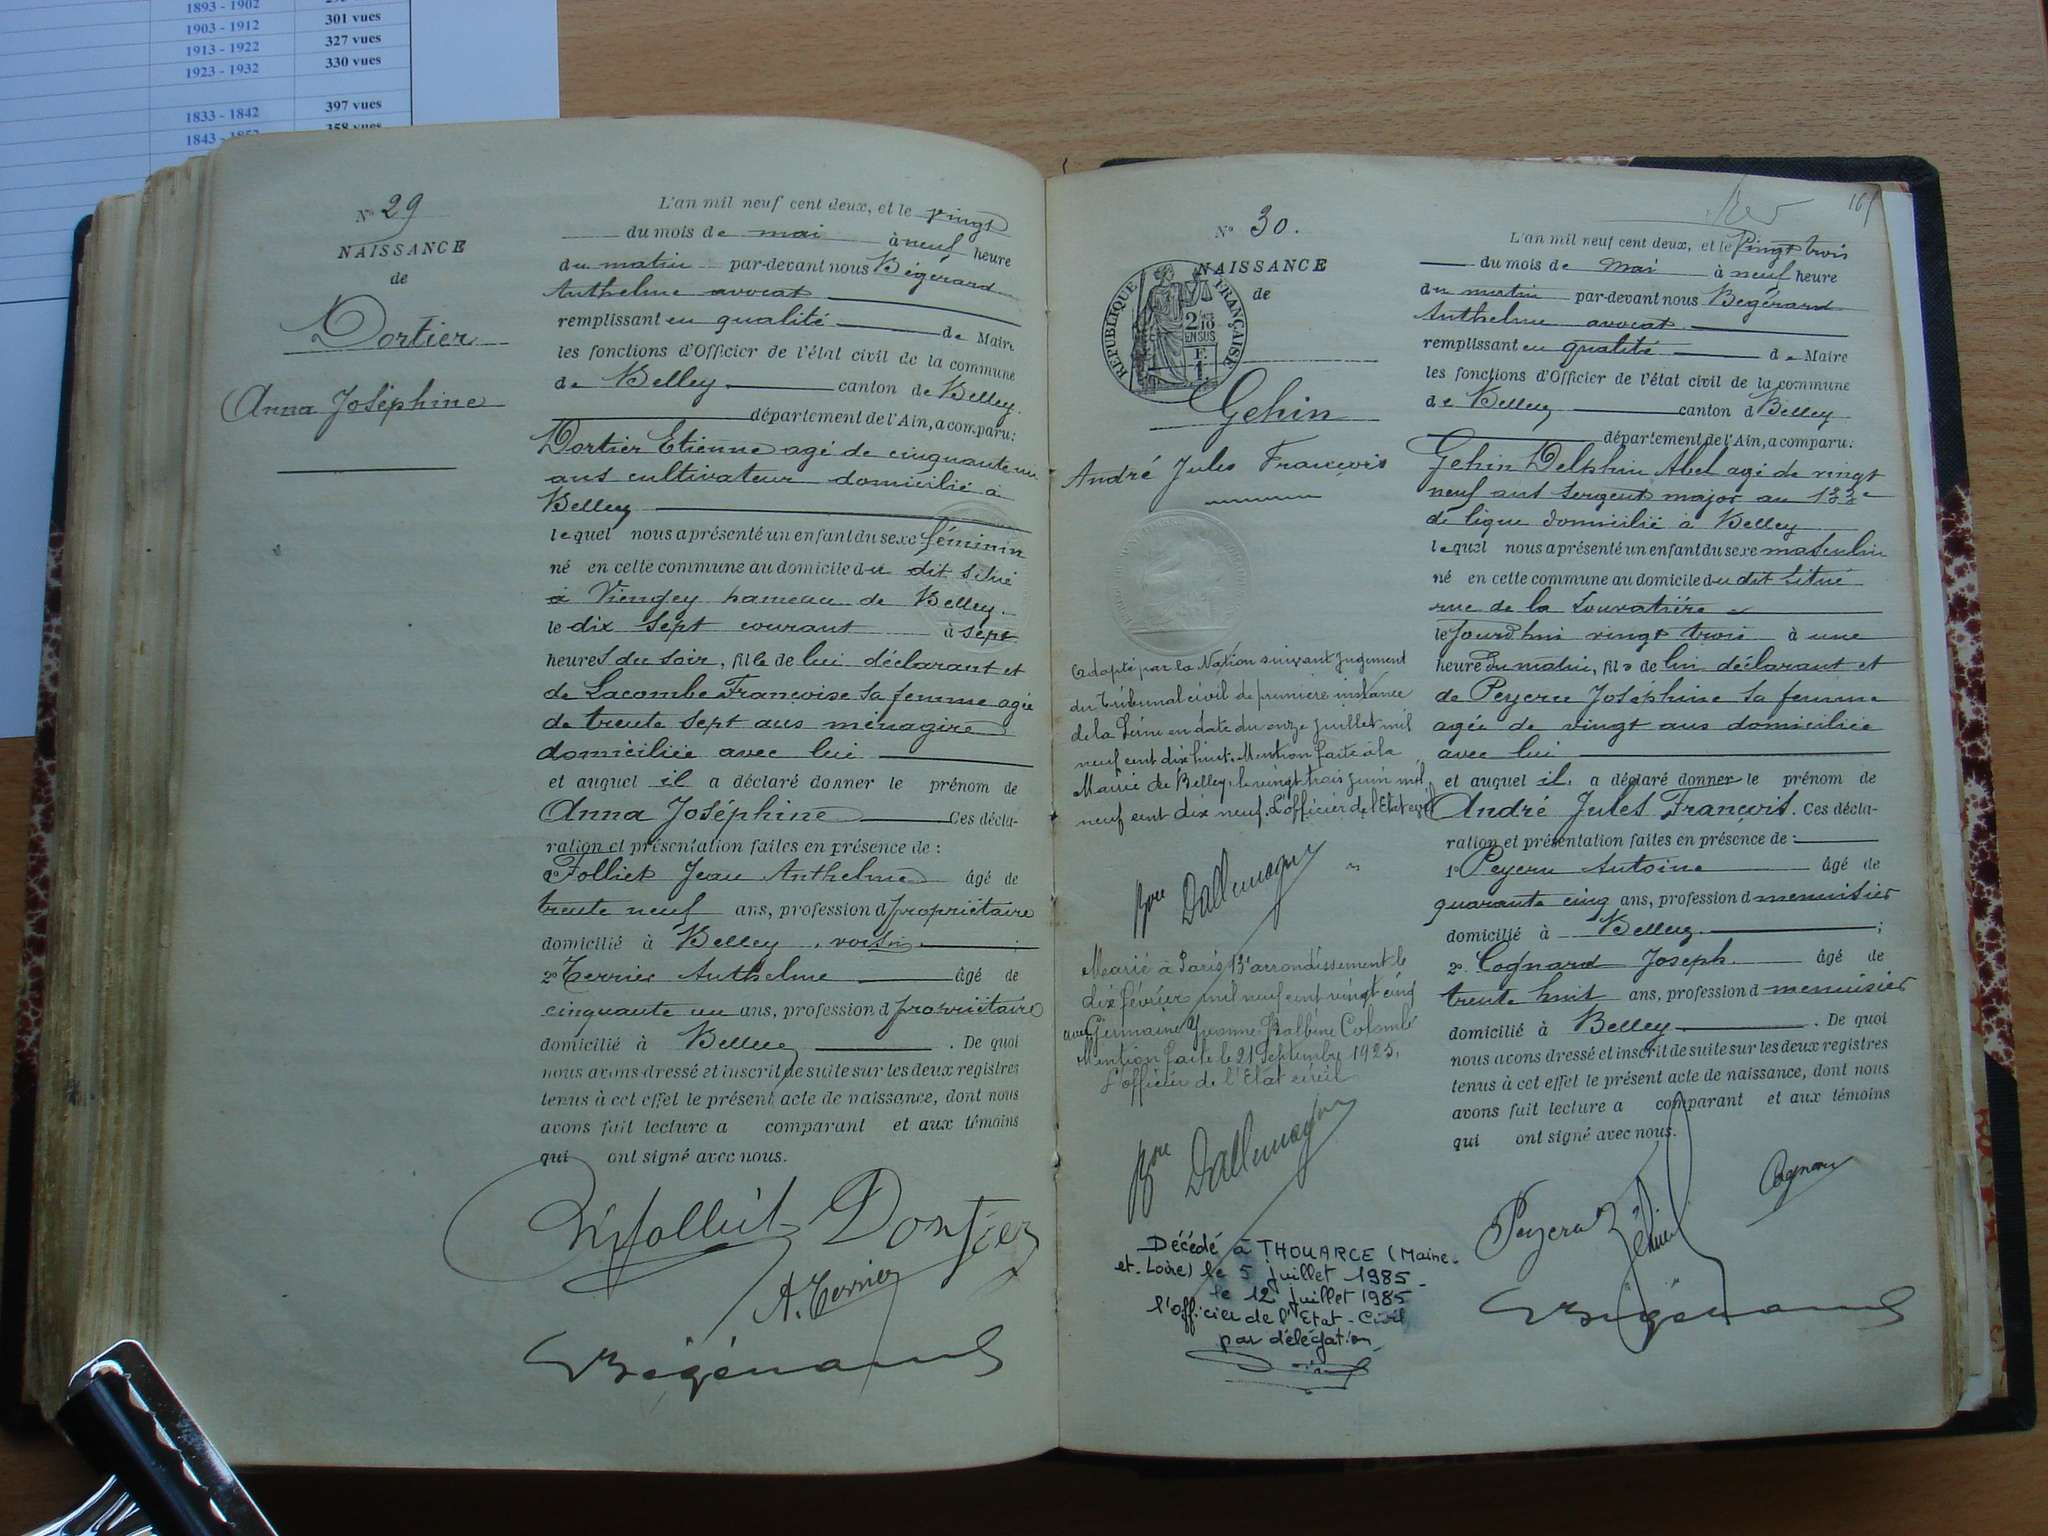 1893 - 1902
1903 - 1912 301 vues
1913 - 1922 327 vues
1923 - 1932 330 vues
1833 - 1842 397 vues
1843 - 1852 358 vues
N° 29
NAISSANCE
de
Dortier
Anna Joséphine
L'an mil neuf cent deux, et le vingt
du mois de mai à neuf heure
du matin par-devant nous Bégérard
Anthelme avocat
remplissant en qualité de Maire
les fonctions d'Officier de l'état civil de la commune
de Belley canton de Belley.
département de l'Ain, a comparu:
Dortier Etienne agé de cinquante un
ans cultivateur domicilié à
Belley
lequel nous a présenté un enfant du sexe féminin
né en cette commune au domicile du dit situé
à Viengey hameau de Belley.
le dix sept courant à sept
heures du soir, fille de lui déclarant et
de Lacombe Françoise sa femme agée
de trente sept ans ménagère
domiciliée avec lui
et auquel il a déclaré donner le prénom de
Anna Joséphine Ces décla-
ration et présentation faites en présence de :
1° Folliet Jean Anthelme âgé de
trente neuf ans, profession d propriétaire
domicilié à Belley, voisin ;
2° Terrier Anthelme âgé de
cinquante un ans, profession d propriétaire
domicilié à Belley . De quoi
nous avons dressé et inscrit de suite sur les deux registres
tenus à cet effet le présent acte de naissance, dont nous
avons fait lecture a comparant et aux témoins
qui ont signé avec nous.
folliet Dortier
A. Terrier
Bégérard
165
N° 30.
NAISSANCE
de
RÉPUBLIQUE FRANÇAISE
2/10
EN SUS
F.
1.
Gehin
André Jules François
Adopté par la Nation suivant jugement
du Tribunal civil de première instance
de la Seine en date du onze juillet mil
neuf cent dix huit. Mention faite à la
Mairie de Belley, le vingt trois juin mil
neuf cent dix neuf. L'officier de l'Etat civil
Bon Dallemagne
Marié à Paris 13e arrondissement le
dix février mil neuf cent vingt cinq
avec Germaine Yvonne Balbine Colombe
Mention faite le 21 Septembre 1925.
L'officier de l'Etat civil
Bon Dallemagne
Décédé à THOUARCE (Maine-
et-Loire) le 5 juillet 1985
le 12 juillet 1985
l'officier de l'Etat-Civil
par délégation
L'an mil neuf cent deux, et le vingt trois
du mois de mai à neuf heure
du matin par-devant nous Bégérard
Anthelme avocat
remplissant en qualité de Maire
les fonctions d'Officier de l'état civil de la commune
de Belley canton d Belley
département de l'Ain, a comparu:
Gehin Delphin Abel agé de vingt
neuf ans sergent major au 133e
de ligne domicilié à Belley
lequel nous a présenté un enfant du sexe masculin
né en cette commune au domicile du dit situé
rue de la Louvatière
le jourd'hui vingt trois à une
heure du matin, fils de lui déclarant et
de Peyeru Joséphine sa femme
agée de vingt ans domiciliée
avec lui
et auquel il a déclaré donner le prénom de
André Jules François. Ces décla-
ration et présentation faites en présence de :
1° Peyeru Antoine âgé de
quarante cinq ans, profession d menuisier
domicilié à Belley ;
2° Cognard Joseph âgé de
trente huit ans, profession d menuisier
domicilié à Belley . De quoi
nous avons dressé et inscrit de suite sur les deux registres
tenus à cet effet le présent acte de naissance, dont nous
avons fait lecture a comparant et aux témoins
qui ont signé avec nous.
Peyeru Géhin Cognard
Bégérard